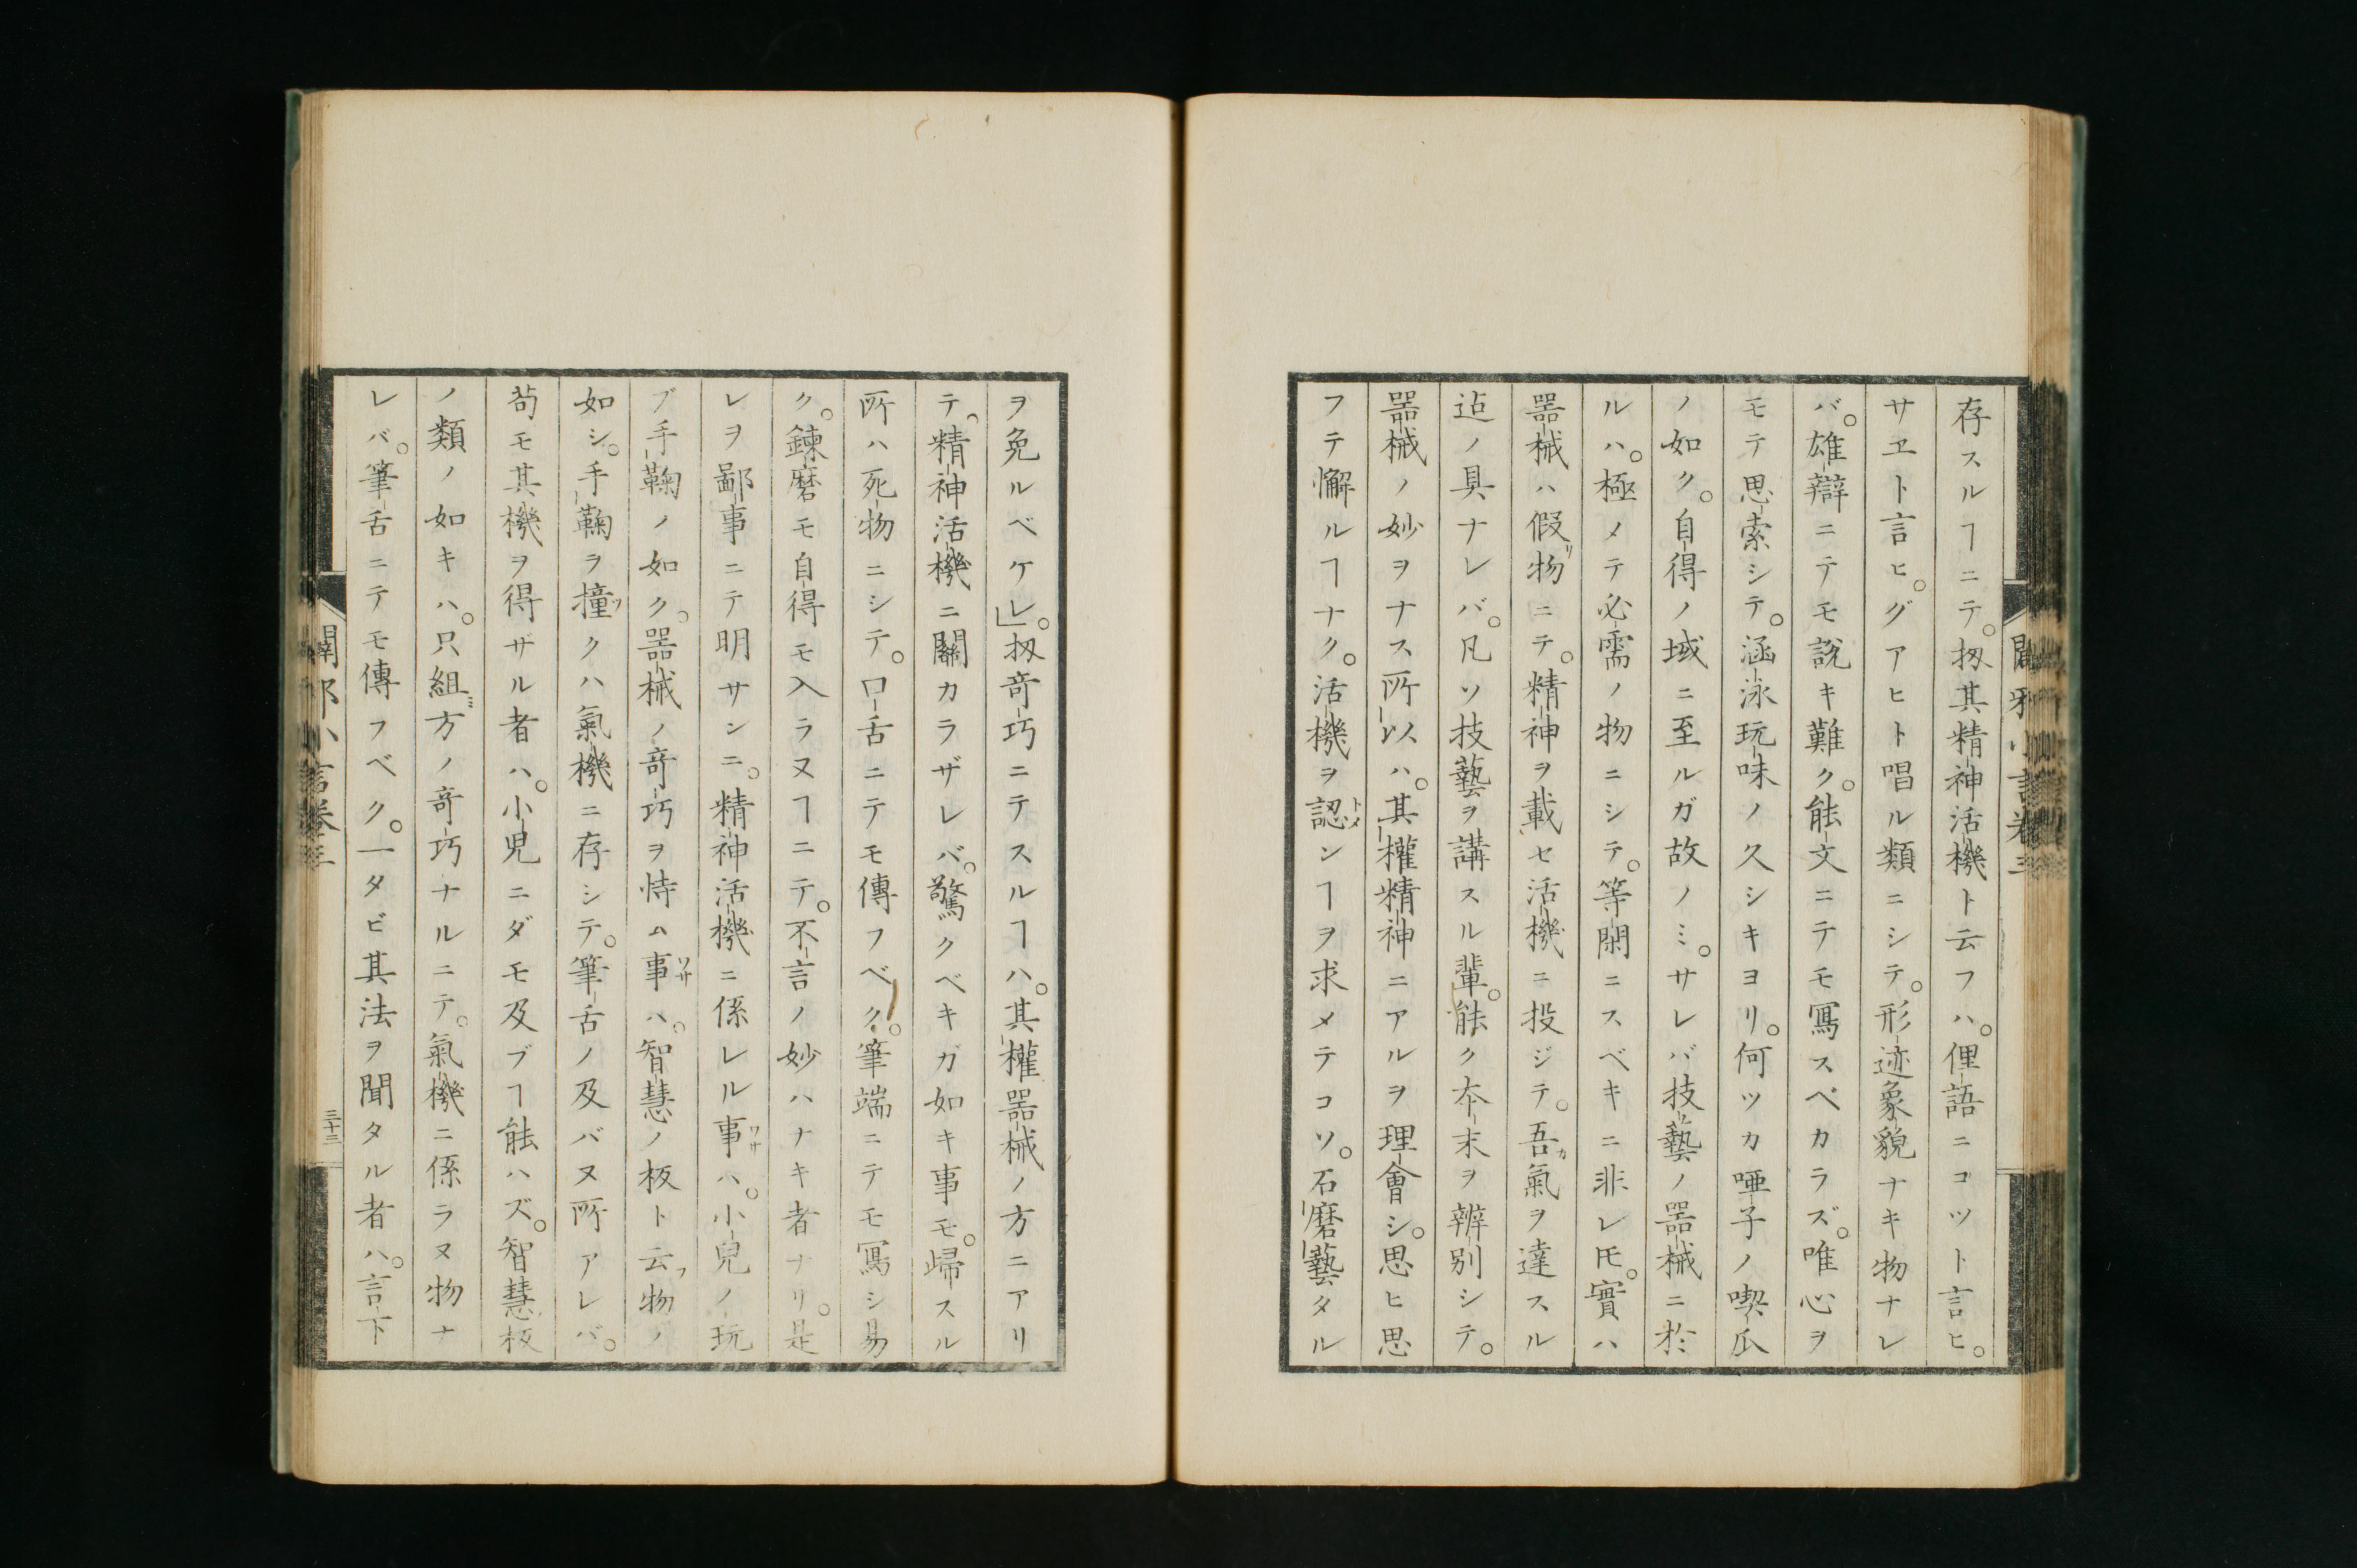 存スルヿニテ。扨其精神活機ト云フハ。俚語ニコツト言ヒ。
サヱト言ヒ。グアヒト唱ル類ニシテ。形迹象貌ナキ物ナレ
バ。雄辯ニテモ說キ難ク。能文ニテモ寫スベカラズ。唯心ヲ
モテ思索シテ。涵泳玩味ノ久シキヨリ。何ツカ唖子ノ喫瓜
ノ如ク。自得ノ域ニ至ルガ故ノミ。サレバ技藝ノ器械ニ於
ルハ。極メテ必需ノ物ニシテ。等閑ニスベキニ非レ𪜈。實ハ
器械ハ假リ物ニテ。精神ヲ載セ活機ニ投ジテ。吾カ氣ヲ達スル
迠ノ具ナレバ。凡ソ技藝ヲ講スル輩。能ク夲末ヲ辨別シテ。
器械ノ妙ヲナス所以ハ。其權精神ニアルヲ理會シ。思ヒ思
フテ懈ルヿナク。活機ヲ認トメンヿヲ求メテコソ。石磨藝タル
ヲ免ルベケレ」。扨奇巧ニテスルヿハ。其權器械ノ方ニアリ
テ、精神活機ニ關カラザレバ。驚クベキガ如キ事モ。歸スル
所ハ死物ニシテ。口舌ニテモ傳フベク。筆端ニテモ寫シ易
ク。鍊磨モ自得モ入ラヌヿニテ。不言ノ妙ハナキ者ナリ。是
レヲ鄙事ニテ明サンニ。精神活機ニ係レル事ワサハ。小兒ノ玩
ブ手鞠ノ如ク。器械ノ奇巧ヲ恃ム事ワサハ。智慧ノ板ト云フ物ノ
如シ。手鞠ヲ撞ツクハ氣機ニ存シテ。筆舌ノ及バヌ所アレバ。
苟モ其機ヲ得ザル者ハ。小兒ニダモ及ブヿ能ハズ。智慧板
ノ類ノ如キハ。只組ミ方ノ奇巧ナルニテ。氣機ニ係ラヌ物ナ
レバ。筆舌ニテモ傳フベク。一タビ其法ヲ聞タル者ハ。言下
闢邪小言卷三
三十三